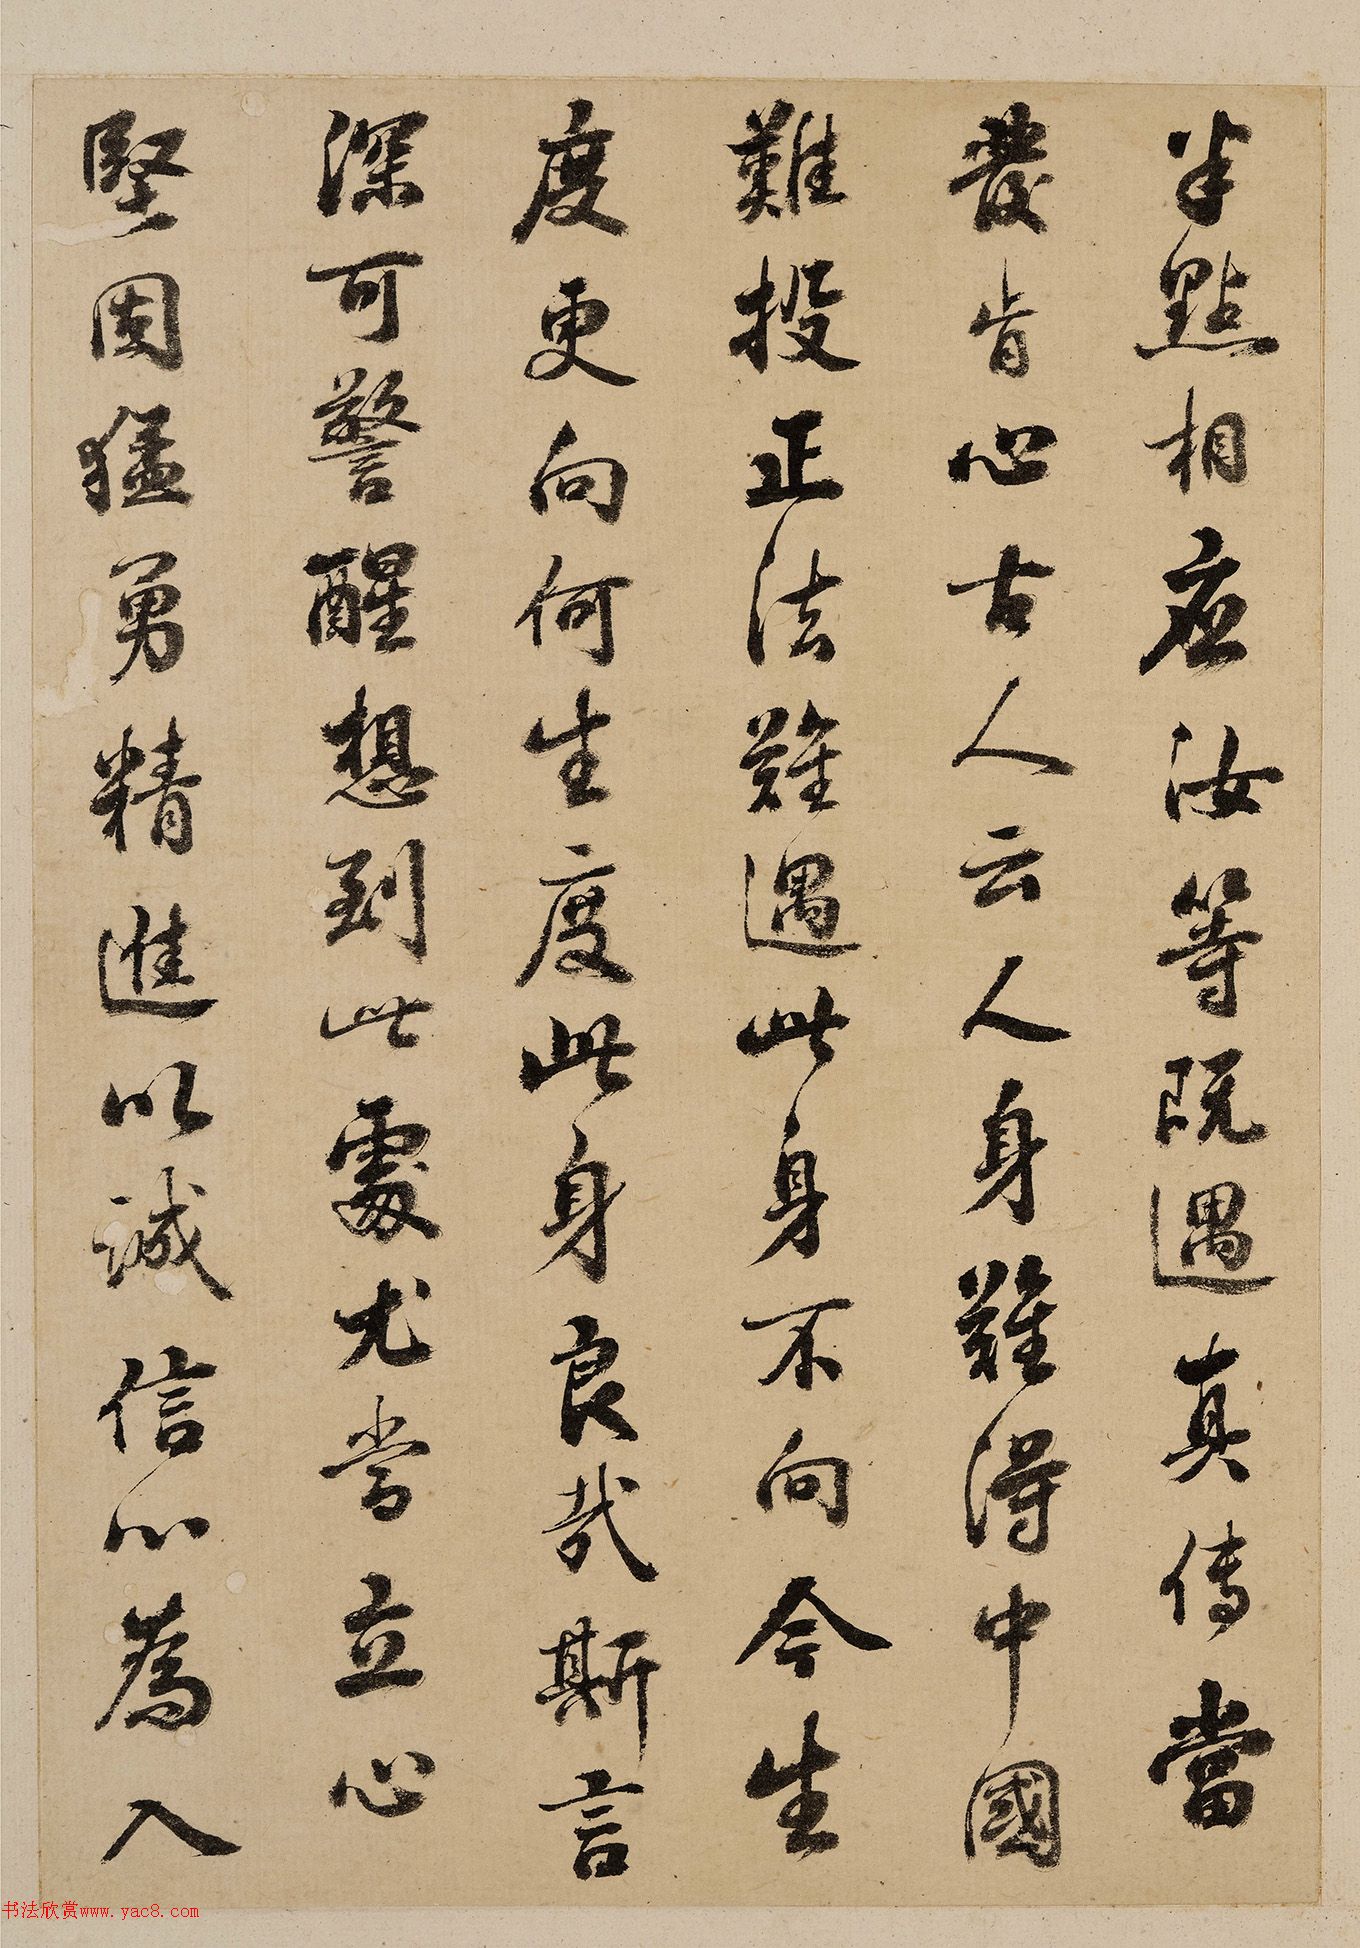 半點相應汝等既遇真傳當
發肯心古人云人身難得中國
難投正法難遇此身不向今生
度更向何生度此身良哉斯言
深可警醒想到此處尤當立心
堅固猛勇精進以誠信心為入
书法欣赏www.yac8.com